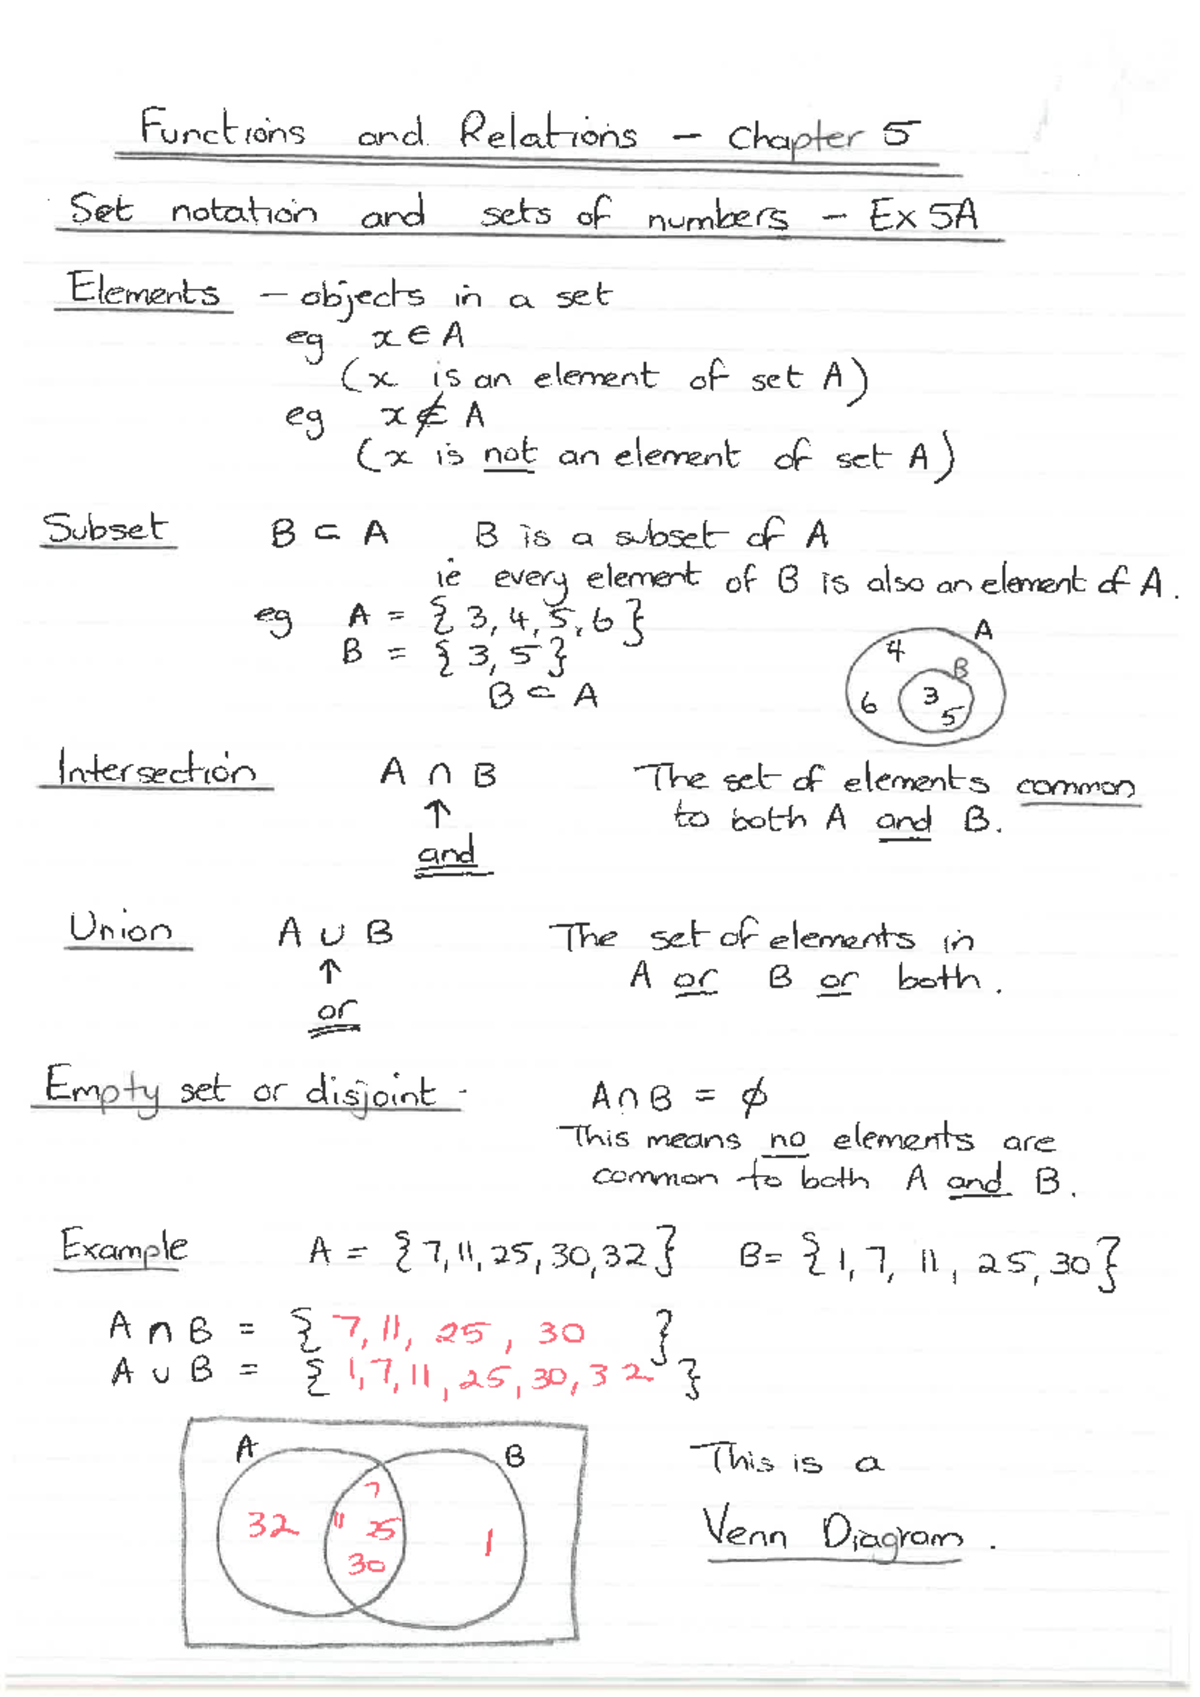 Functions and Relations - Chapter 5
Set notation and sets of numbers - Ex 5A
Elements - objects in a set
eg x ∈ A
(x is an element of set A)
eg x ∉ A
(x is not an element of set A)
Subset B ⊂ A B is a subset of A
ie every element of B is also an element of A.
eg A = {3, 4, 5, 6}
B = {3, 5}
B ⊂ A
A
4
B
6 3
5
Intersection A ∩ B The set of elements common
↑ to both A and B.
and
Union A ∪ B The set of elements in
↑ A or B or both.
or
Empty set or disjoint - A∩B = ϕ
This means no elements are
common to both A and B.
Example A = {7, 11, 25, 30, 32} B = {1, 7, 11, 25, 30}
A ∩ B = {7, 11, 25, 30 }
A ∪ B = {1, 7, 11, 25, 30, 32}
A B
7
32 11 25 1
30
This is a
Venn Diagram.